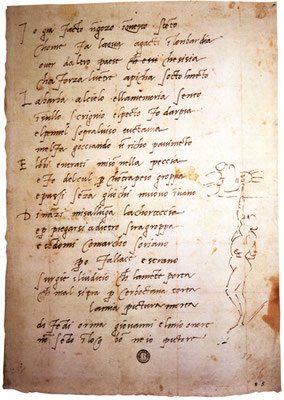 I o gia facto ugozo i questo steto
chome fa lacqua agacti i lombardia
over daltro paese che essi chesisia
cha forza luetre apicha socto lmeto
L abarba alcielo ella memoria sento
isullo scrignio elpecto fo darpia
elpennel sopraluiso tuctavia
melfa gocciando u richo pavimeto
E lobi entrati miso nella peccia
e fo delcul p chotrapeso groppa
e passi seza gliochi muovo i vano
D inazi misalluga lachorteccia
e p piegarsi adietro siragroppa
e tedomi comarcho soriano
po fallace e strano
surgie iluiditio ch lamete porta
ch mal si tra p cerbottana torta
lamia pictura morta
di fedi orma giovanni elmio onore
no sedo i loco bo ne io pictore